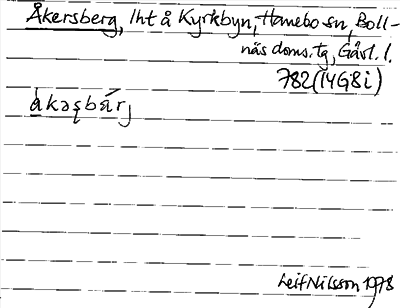 Åkersberg, lht å Kyrkbyn, Hanebo sn, Boll-
näs doms.tg, Gävl. l.
782 (14G8i)
àkəşbárj
Leif Nilsson 1978